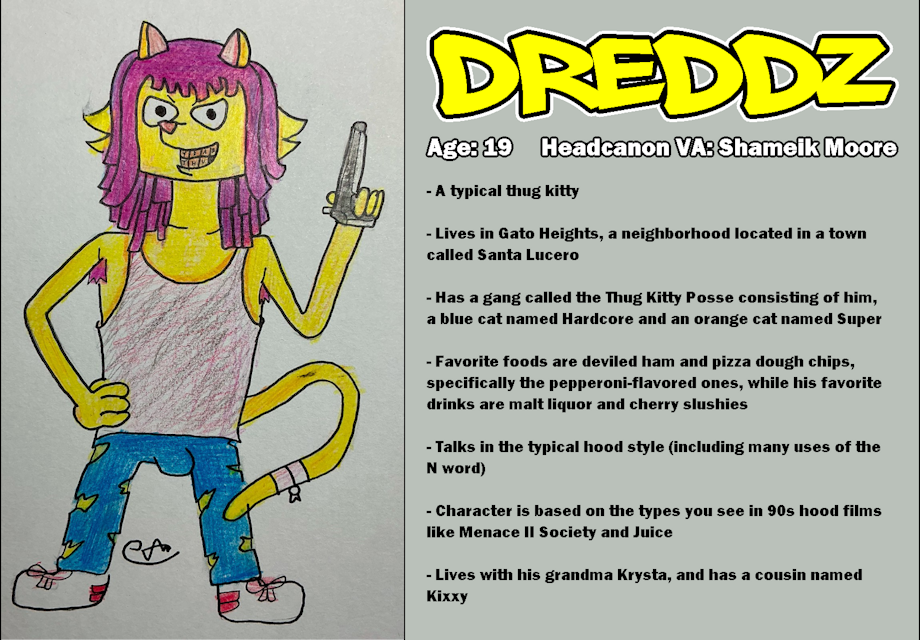 DREDDZ
Age: 19 Headcanon VA: Shameik Moore
- A typical thug kitty
- Lives in Gato Heights, a neighborhood located in a town
called Santa Lucero
- Has a gang called the Thug Kitty Posse consisting of him,
a blue cat named Hardcore and an orange cat named Super
- Favorite foods are deviled ham and pizza dough chips,
specifically the pepperoni-flavored ones, while his favorite
drinks are malt liquor and cherry slushies
- Talks in the typical hood style (including many uses of the
N word)
- Character is based on the types you see in 90s hood films
like Menace II Society and Juice
- Lives with his grandma Krysta, and has a cousin named
Kixxy